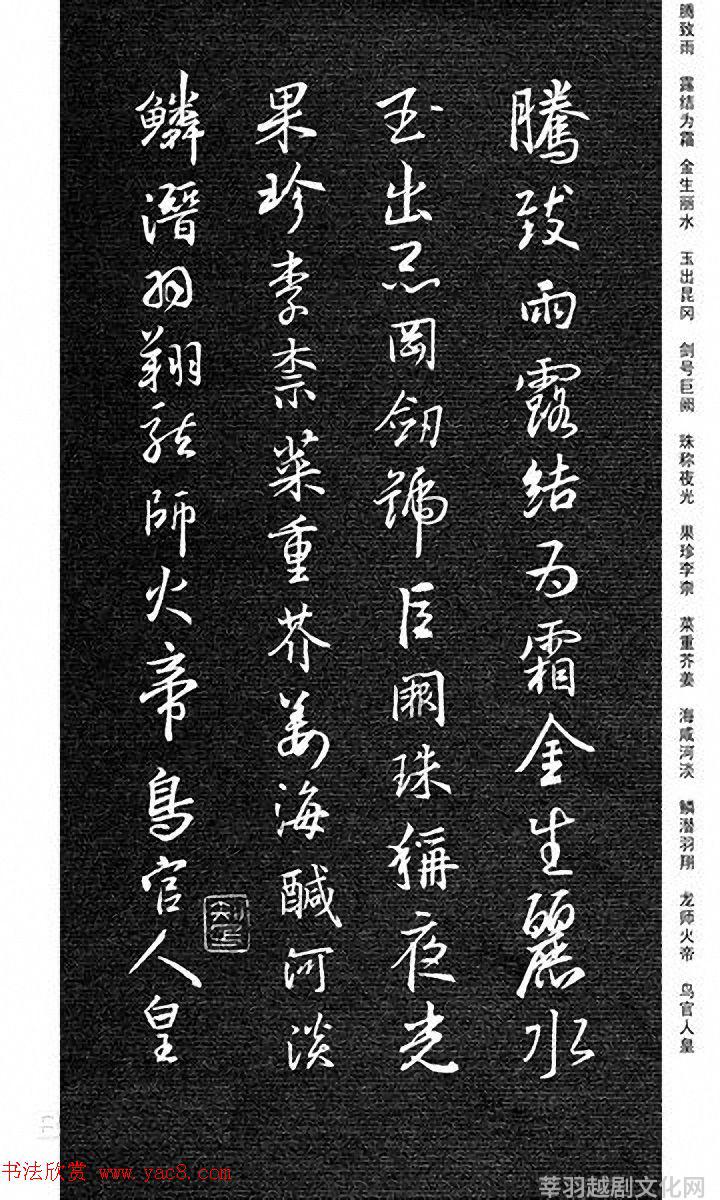 腾致雨 露结为霜 金生丽水 玉出昆冈 剑号巨阙 珠称夜光 果珍李柰 菜重芥姜 海咸河淡 鳞潜羽翔 龙师火帝 鸟官人皇
騰致雨露結為霜金生麗水
玉出昆岡劒號巨闕珠稱夜光
果珍李柰菜重芥姜海醎河淡
鱗潛羽翔龍師火帝鳥官人皇
书法欣赏 www.yac8.com
莘羽越剧文化网